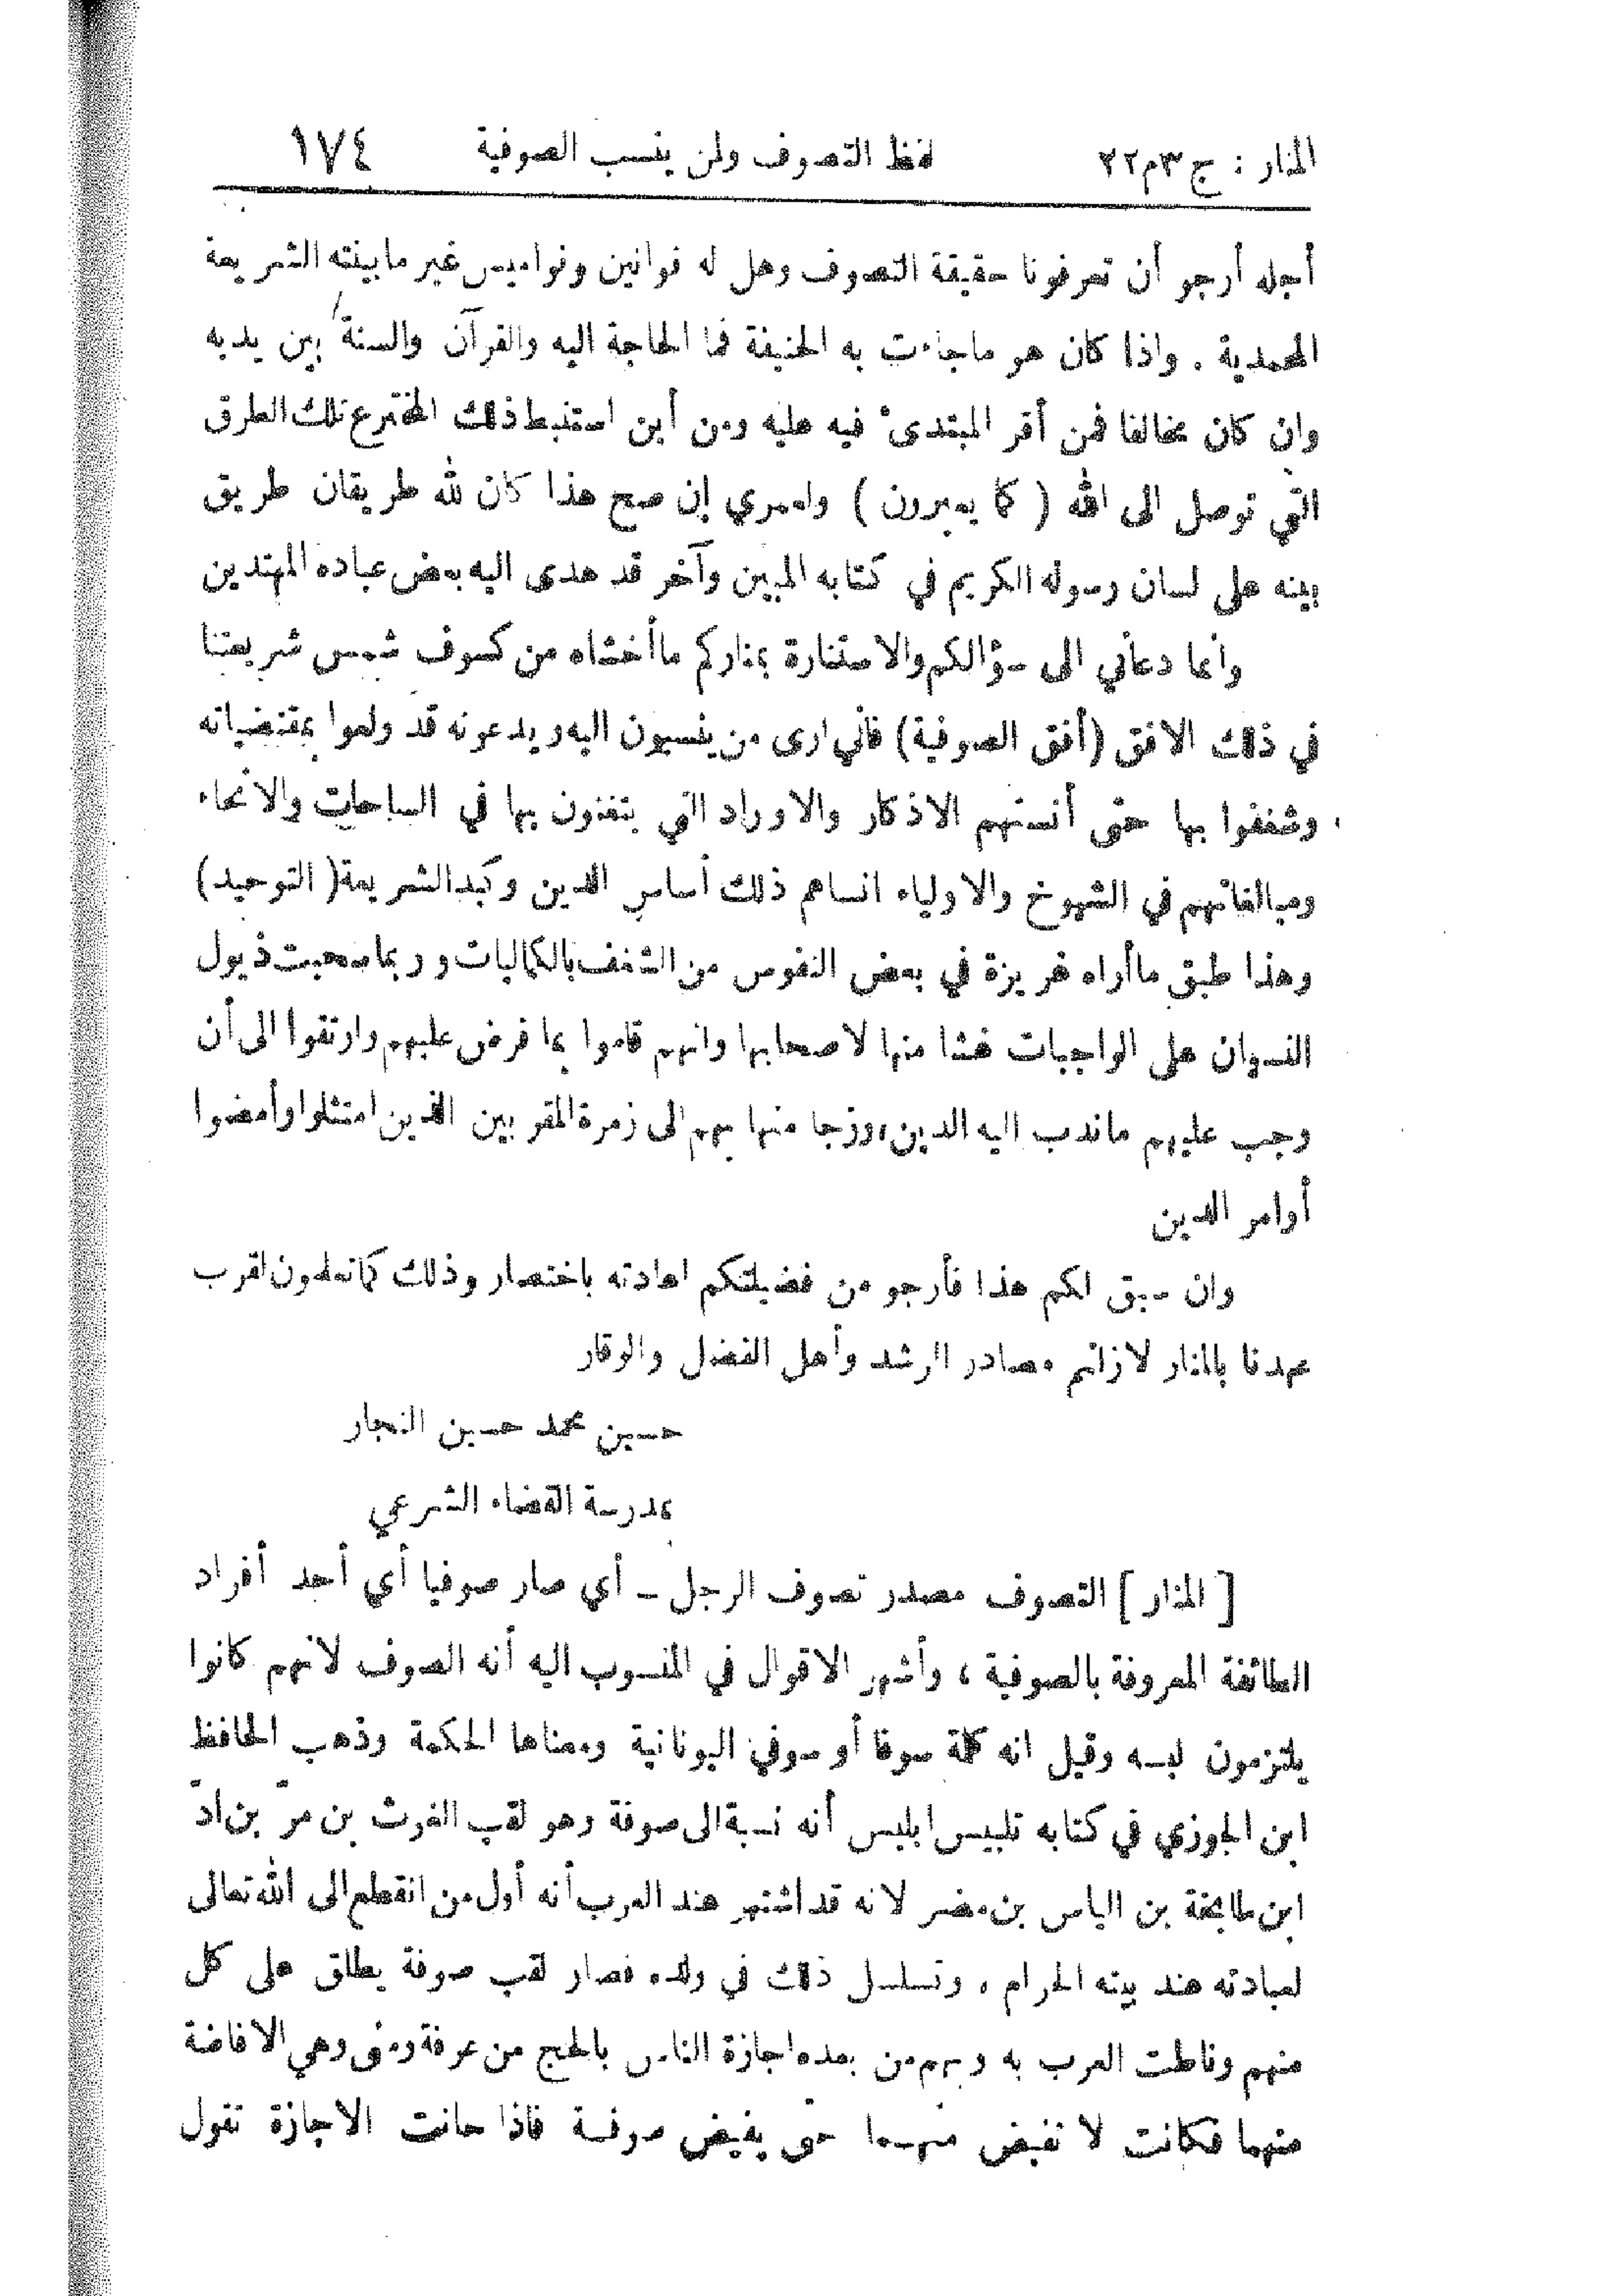 المنار : ج ٣ م ٢٢ لفظ التصوف ولمن ينسب الصوفية ١٧٤
أجله أرجو أن تعرفونا حقيقة التصوف وهل له قوانين ونواميس غير ما بينته الشريعة
المحمدية . واذا كان هو ماجاءت به الحنيفة فما الحاجة اليه والقرآن والسنة بين يديه
وان كان مخالفا فمن أقر المبتدئ فيه عليه ومن أين استنبط ذلك المخترع تلك الطرق
التي توصل الى الله ( كما يعبرون ) ولعمري إن صح هذا كان لله طريقان طريق
بينه على لسان رسوله الكريم في كتابه المبين وآخر قد هدى اليه بعض عباده المهتدين
وانما دعاني الى سؤالكم والاستنارة بمناركم ماأخشاه من كسوف شمس شريعتنا
في ذلك الافق (أفق الصوفية) فاني ارى من ينسبون اليه ويدعونه قد ولعوا بمقتضياته
وشغفوا بها حتى أنستهم الاذكار والاوراد التي يتغنون بها في الساحات والانحاء
ومبالغاتهم في الشيوخ والاولياء انساهم ذلك أساس الدين وكبد الشريعة ( التوحيد)
وهذا طبق ماأراه غريزة في بعض النفوس من الشغف بالكماليات وربما سحبت ذيول
النسوان على الواجبات غشا منها لاصحابها وانهم قاموا بما فرض عليهم وارتقوا الى أن
وجب عليهم ماندب اليه الدين، وزجا منها بهم الى زمرة المقربين الذين امتثلوا وأمضوا
أوامر الدين
وان سبق لكم هذا فأرجو من فضيلتكم اعادته باختصار وذلك كما تعلمون لقرب
عهدنا بالمنار لازلتم مصادر الرشد وأهل الفضل والوقار
حسين محمد حسين النجار
بمدرسة القضاء الشرعي
[ المنار ] التصوف مصدر تصوف الرجل ـ أي صار صوفيا أي أحد أفراد
الطائفة المعروفة بالصوفية ، وأشهر الاقوال في المنسوب اليه أنه الصوف لانهم كانوا
يلتزمون لبسه وقيل انه كلمة سوفا أو سوفي اليونانية ومعناها الحكمة وذهب الحافظ
ابن الجوزي في كتابه تلبيس ابليس أنه نسبة الى صوفة وهو لقب الغوث بن مرّ بن ادّ
ابن طابخة بن الياس بن مضر لانه قد اشتهر عند العرب أنه أول من انقطع الى الله تعالى
لعبادته عند بيته الحرام ، وتسلسل ذلك في ولده فصار لقب صوفة يطلق على كل
منهم وناطت العرب به وبهم من بعده اجازة الناس بالحج من عرفة ومنى وهي الافاضة
منهما فكانت لا تفيض منهما حتى يفيض صوفة فاذا حانت الاجازة تقول